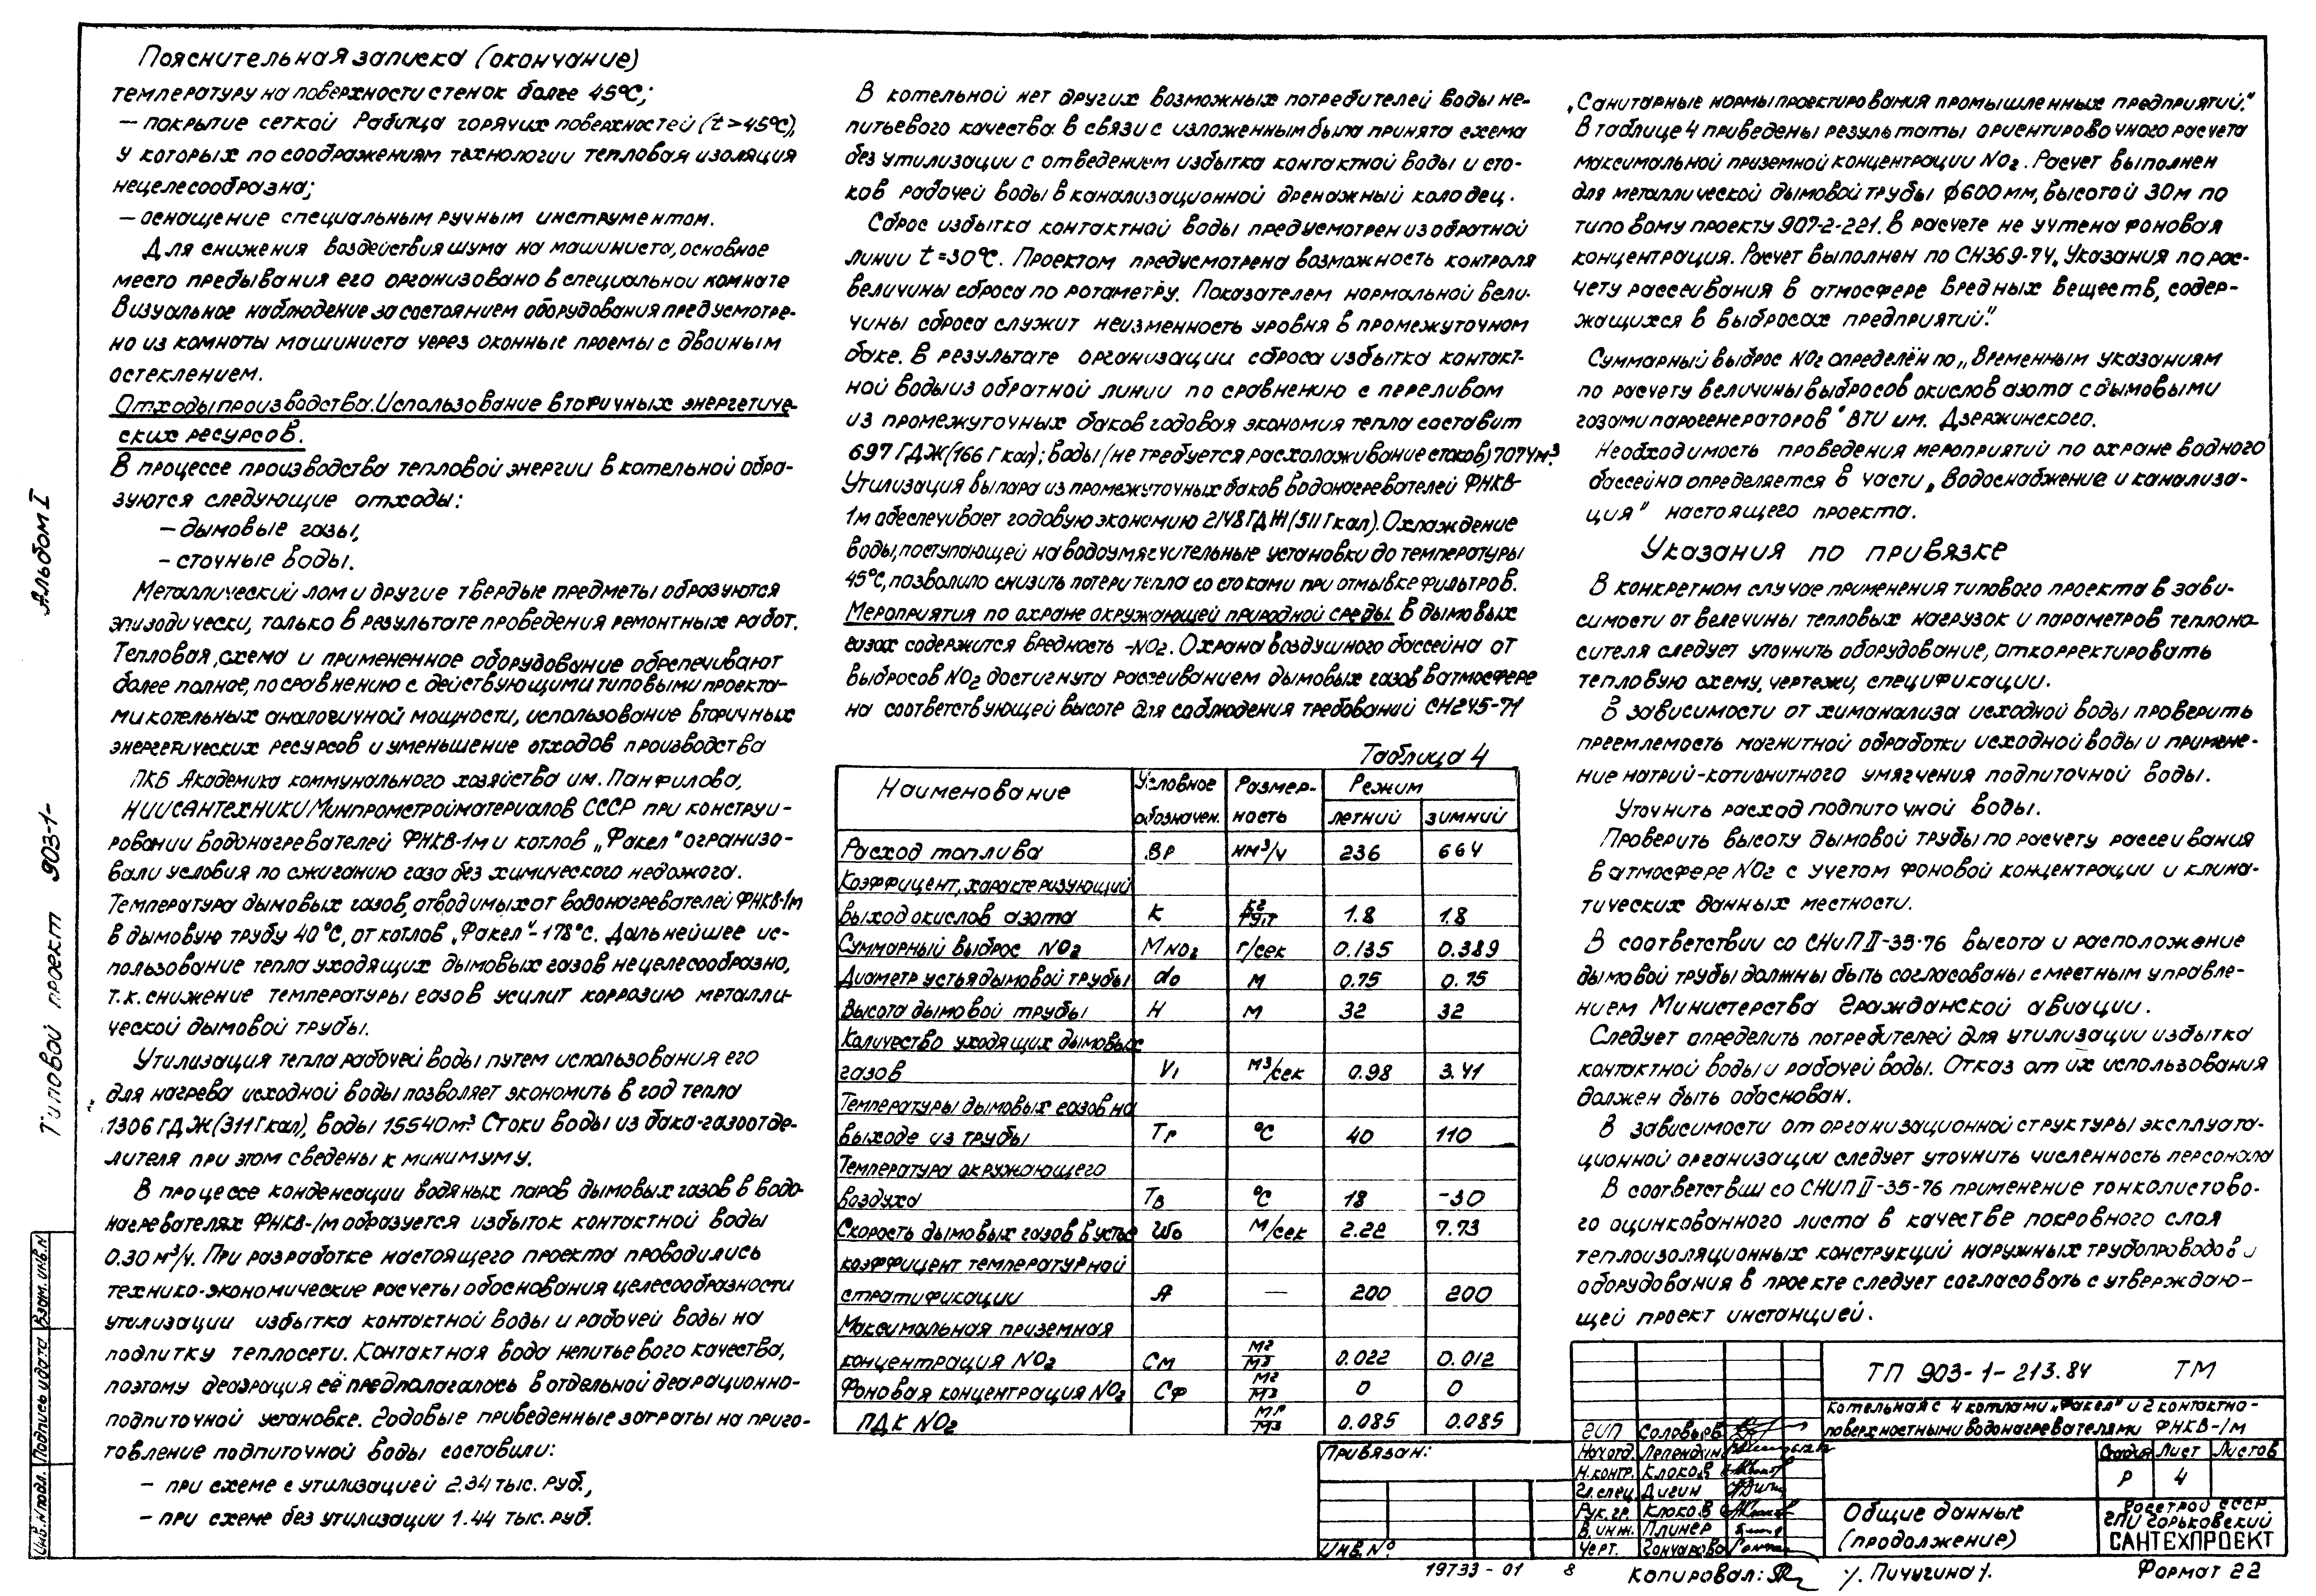 Пояснительная записка (окончание)
температуру на поверхности стенок более 45°С;
— покрытие сеткой Рабица горячих поверхностей (t>45°С),
у которых по соображениям технологии тепловая изоляция
нецелесообразна;
— оснащение специальным ручным инструментом.
Для снижения воздействия шума на машиниста, основное
место пребывания его организовано в специальной комнате
Визуальное наблюдение за состоянием оборудования предусмотре-
но из комнаты машиниста через оконные проемы с двойным
остеклением.
Отходы производства. Использование вторичных энергетиче-
ских ресурсов.
В процессе производства тепловой энергии в котельной обра-
зуются следующие отходы:
— дымовые газы,
— сточные воды.
Металлический лом и другие твердые предметы образуются
эпизодически, только в результате проведения ремонтных работ.
Тепловая схема и примененное оборудование обеспечивают
более полное, по сравнению с действующими типовыми проекта-
ми котельных аналогичной мощности, использование вторичных
энергетических ресурсов и уменьшение отходов производства
ПКБ Академика коммунального хозяйства им. Панфилова,
НИИСАНТЕХНИКИ Минпромстройматериалов СССР при конструи-
ровании водонагревателей ФНКВ-1м и котлов „Факел" огранизо-
вали условия по сжиганию газа без химического недожога.
Температура дымовых газов, отводимых от водонагревателей ФНКВ-1м
в дымовую трубу 40°С, от котлов „Факел"-178°С. Дальнейшее ис-
пользование тепла уходящих дымовых газов нецелесообразно,
т.к. снижение температуры газов усилит коррозию металли-
ческой дымовой трубы.
Утилизация тепла рабочей воды путем использования его
для нагрева исходной воды позволяет экономить в год тепла
1306 ГДЖ (311 Гкал), воды 15540м³. Стоки воды из бака-газоотде-
лителя при этом сведены к минимуму.
В процессе конденсации водяных паров дымовых газов в водо-
нагревателях ФНКВ-1м образуется избыток контактной воды
0.30 м³/ч. При разработке настоящего проекта проводились
технико-экономические расчеты обоснования целесообразности
утилизации избытка контактной воды и рабочей воды на
подпитку теплосети. Контактная вода непитьевого качества,
поэтому деаэрация её предполагалось в отдельной деарационно-
подпиточной установке. Годовые приведенные затраты на приго-
товление подпиточной воды составили:
— при схеме с утилизацией 2.34 тыс. руб.,
— при схеме без утилизации 1.44 тыс. руб.
В котельной нет других возможных потребителей воды не-
питьевого качества. В связи с изложенным была принята схема
без утилизации с отведением избытка контактной воды и сто-
ков рабочей воды в канализационной дренажный колодец.
Сброс избытка контактной воды предусмотрен из обратной
линии t=30°С. Проектом предусмотрена возможность контроля
величины сброса по ротаметру. Показателем нормальной вели-
чины сброса служит неизменность уровня в промежуточном
баке. В результате организации сброса избытка контакт-
ной воды из обратной линии по сравнению с переливом
из промежуточных баков годовая экономия тепла составит
697 ГДЖ (166 Гкал); воды (не требуется расхолаживание стоков) 7074м³.
Утилизация выпара из промежуточных баков водонагревателей ФНКВ-
1м обеспечивает годовую экономию 2148 ГДЖ (511 Гкал). Охлаждение
воды, поступающей на водоумягчительные установки до температуры
45°С, позволило снизить потери тепла со стоками при отмывке фильтров.
Мероприятия по охране окружающей природной среды. В дымовых
газах содержится вредность -NO2. Охрана воздушного бассейна от
выбросов NO2 достигнута рассеиванием дымовых газов в атмосфере
на соответствующей высоте для соблюдения требований СН245-71
Таблица 4
Наименование Условное обозначен. Размер-ность Режим
летний зимний
Расход топлива Вр нм³/ч 236 664
Коэффицент, характеризующий
выход окислов азота К 1.8 1.8
Суммарный выброс NO2 МNO2 г/сек 0.135 0.389
Диаметр устья дымовой трубы do м 0.75 0.75
Высота дымовой трубы Н м 32 32
Количество уходящих дымовых
газов V1 м³/сек 0.98 3.41
Температуры дымовых газов на
выходе из трубы Тг °С 40 110
Температура окружающего
воздуха Тв °С 18 -30
Скорость дымовых газов в устье Wo м/сек 2.22 7.73
коэффицент температурной
стратификации А — 200 200
Максимальная приземная
концентрация NO2 См мг/м3 0.022 0.012
Фоновая концентрация NO2 Сф мг/м3 0 0
ПДК NO2 мг/м3 0.085 0.085
„Санитарные нормы проектирования промышленных предприятий."
В таблице 4 приведены результаты ориентировочного расчета
максимальной приземной концентрации NO2. Расчет выполнен
для металлической дымовой трубы ф600мм, высотой 30м по
типовому проекту 907-2-221. В расчете не учтена фоновая
концентрация. Расчет выполнен по СН369-74„Указания по рас-
чету рассеивания в атмосфере вредных веществ, содер-
жащихся в выбросах предприятий".
Суммарный выброс NO2 определён по „Временным указаниям
по расчету величины выбросов окислов азота с дымовыми
газами парогенераторов" ВТИ им. Дзержинского.
Необходимость проведения мероприятий по охране водного
бассейна определяется в части „Водоснабжение и канализа-
ция" настоящего проекта.
Указания по привязке
В конкретном случае применения типового проекта в зави-
симости от велечины тепловых нагрузок и параметров теплоно-
сителя следует уточнить оборудование, откорректировать
тепловую схему, чертежи, спецификации.
В зависимости от химанализа исходной воды проверить
преемлемость магнитной обработки исходной воды и примене-
ние натрий-катионитного умягчения подпиточной воды.
Уточнить расход подпиточной воды.
Проверить высоту дымовой трубы по расчету рассеивания
в атмосфере NO2 с учетом фоновой концентрации и клима-
тических данных местности.
В соответствии со СНиП II-35-76 высота и расположение
дымовой трубы должны быть согласованы с местным управле-
нием Министерства Гражданской авиации.
Следует определить потребителей для утилизации избытка
контактной воды и рабочей воды. Отказ от их использования
должен быть обоснован.
В зависимости от организационной структуры эксплуата-
ционной организации следует уточнить численность персонала
В соответствии со СНИП II-35-76 применение тонколистово-
го оцинкованного листа в качестве покровного слоя
теплоизоляционных конструкций наружных трубопроводов и
оборудования в проекте следует согласовать с утверждаю-
щей проект инстанцией.
Привязан:
Инв.№
ГИП Соловьев
Нач.отд. Лепендин
Н.контр. Клоков
Гл.спец. Дигин
Рук.гр. Клоков
В.инж. Плинер
Черт. Гончарова
ТП 903-1-213.84 ТМ
Котельная с 4 котлами „Факел" и 2 контактно-
поверхностными водонагревателями ФНКВ-1м
Стадия Лист Листов
Р 4
Общие данные
(продолжение)
Госстрой СССР.
ГПИ Горьковский
САНТЕХПРОЕКТ
19733-01 8
Копировал: Пичугина Формат 22
Альбом I
Типовой проект 903-1-
Взам. инв.N
Подпись и дата
Инв.N подл.